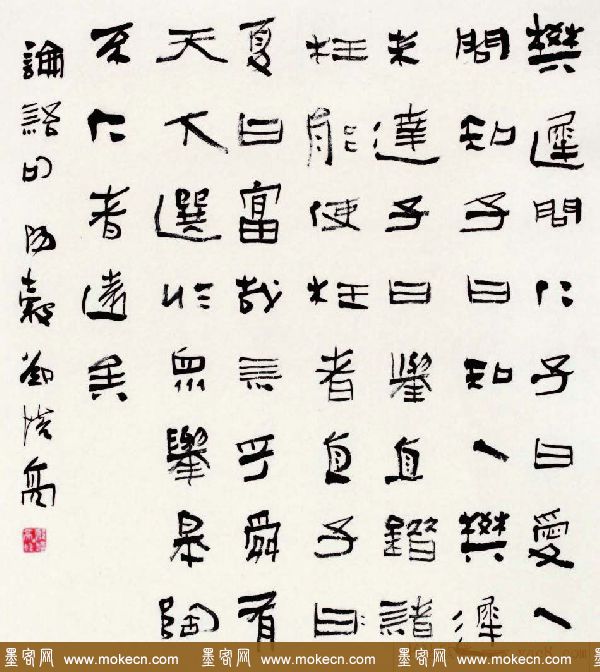 樊遲問仁子曰愛人
問知子曰知人樊遲
未達子曰舉直錯諸
枉能使枉者直子曰
夏曰富哉言乎舜有
天下選於眾舉皋陶
不仁者遠矣
論語句
墨客网 www.mokecn.com 墨客网 www.mokecn.com 墨客网 www.mokecn.com 墨客网 www.mokecn.com